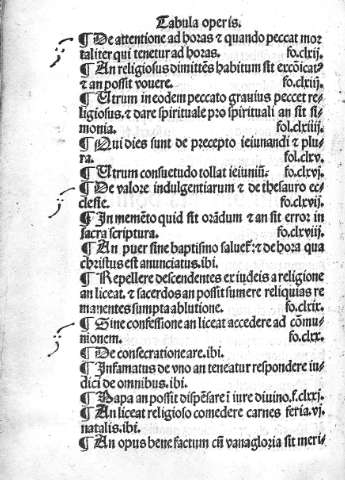 Tabula operis.
¶ De attentione ad horas ⁊ quando peccat mor
taliter qui tenetur ad horas. fo.clxij.
¶ An religiosus dimittēs habitum sit excōicat⁹
⁊ an possit vouere. fo.clxiij.
¶ Utrum in eodem peccato grauius peccet re⸗
ligiosus.⁊ dare spirituale pro spirituali an sit si⸗
monia. fol.clxiiij.
¶ Qui dies sunt de precepto ieiunandi ⁊ plu⸗
ra. fol.clxv.
¶ Utrum consuetudo tollat ieiuniū. fo.clxvj.
¶ De valore indulgentiarum ⁊ de thesauro ec⸗
clesie. fo.clxvij.
¶ In memēto quid sit orādum ⁊ an sit error in
sacra scriptura. fo.clxviij.
¶ An puer sine baptismo saluet᷑:⁊ de hora qua
christus est anunciatus.ibi.
¶ Repellere descendentes ex iudeis a religione
an liceat. ⁊ sacerdos an possit sumere reliquias re
manentes sumpta ablutione. fo.clxix.
¶ Sine confessione an liceat accedere ad cōmu⸗
nionem. fo.clxx.
¶ De consecratione are.ibi.
¶ Infamatus de vno an teneatur respondere iu⸗
dici de omnibus.ibi.
¶ Papa an possit dispēsare ī iure diuino.f.clxxj.
¶ An liceat religioso comedere carnes feria.vj.
natalis.ibi.
¶ An opus bene factum cū vanagloria sit meri⸗